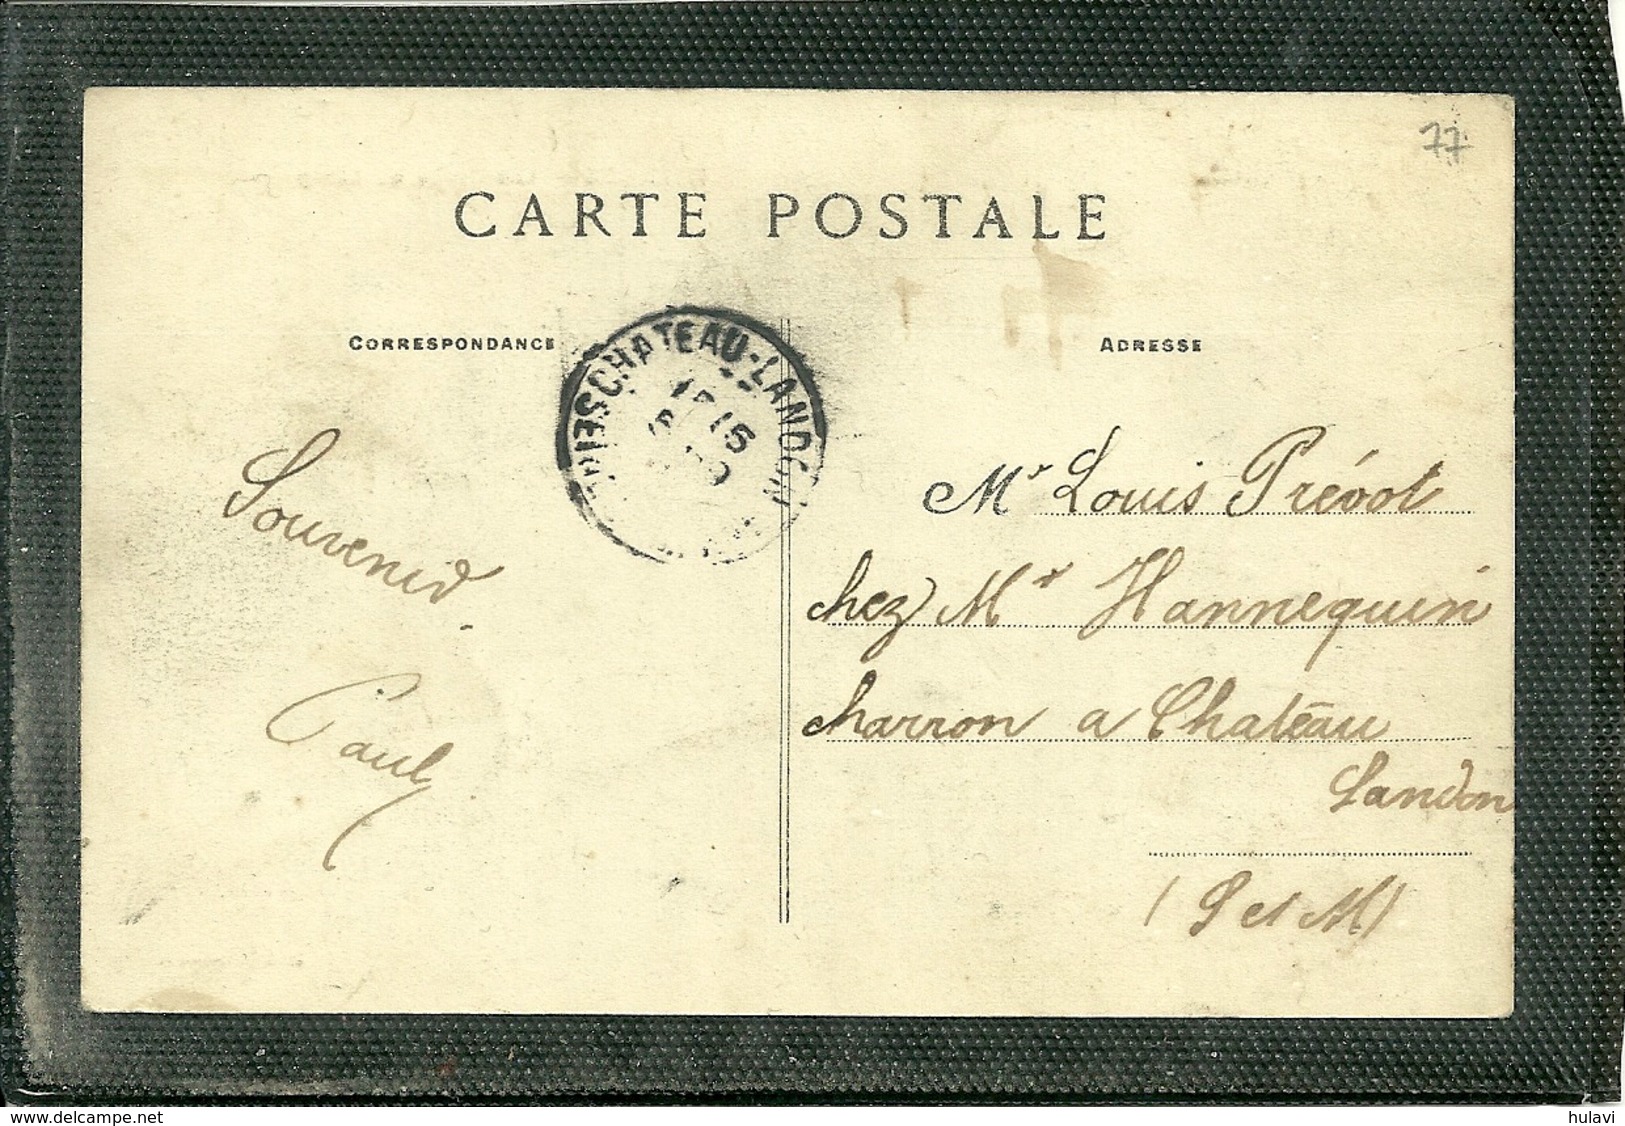 77
CARTE POSTALE
CORRESPONDANCE
ADRESSE
CHATEAU-LANDON
15
Souvenir.
Paul
Mr Louis Prévot
chez Mr Hannequin
charron a Château
Landon
(S et M)
delcampe.net
hulavi